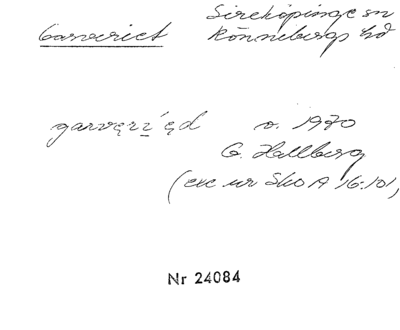 Sireköpinge sn
Garveriet Rönnebergs hd
garvęrí ̨ęd o. 1970
G. Hallberg
(exc ur Sko A 16:101)
Nr 24084